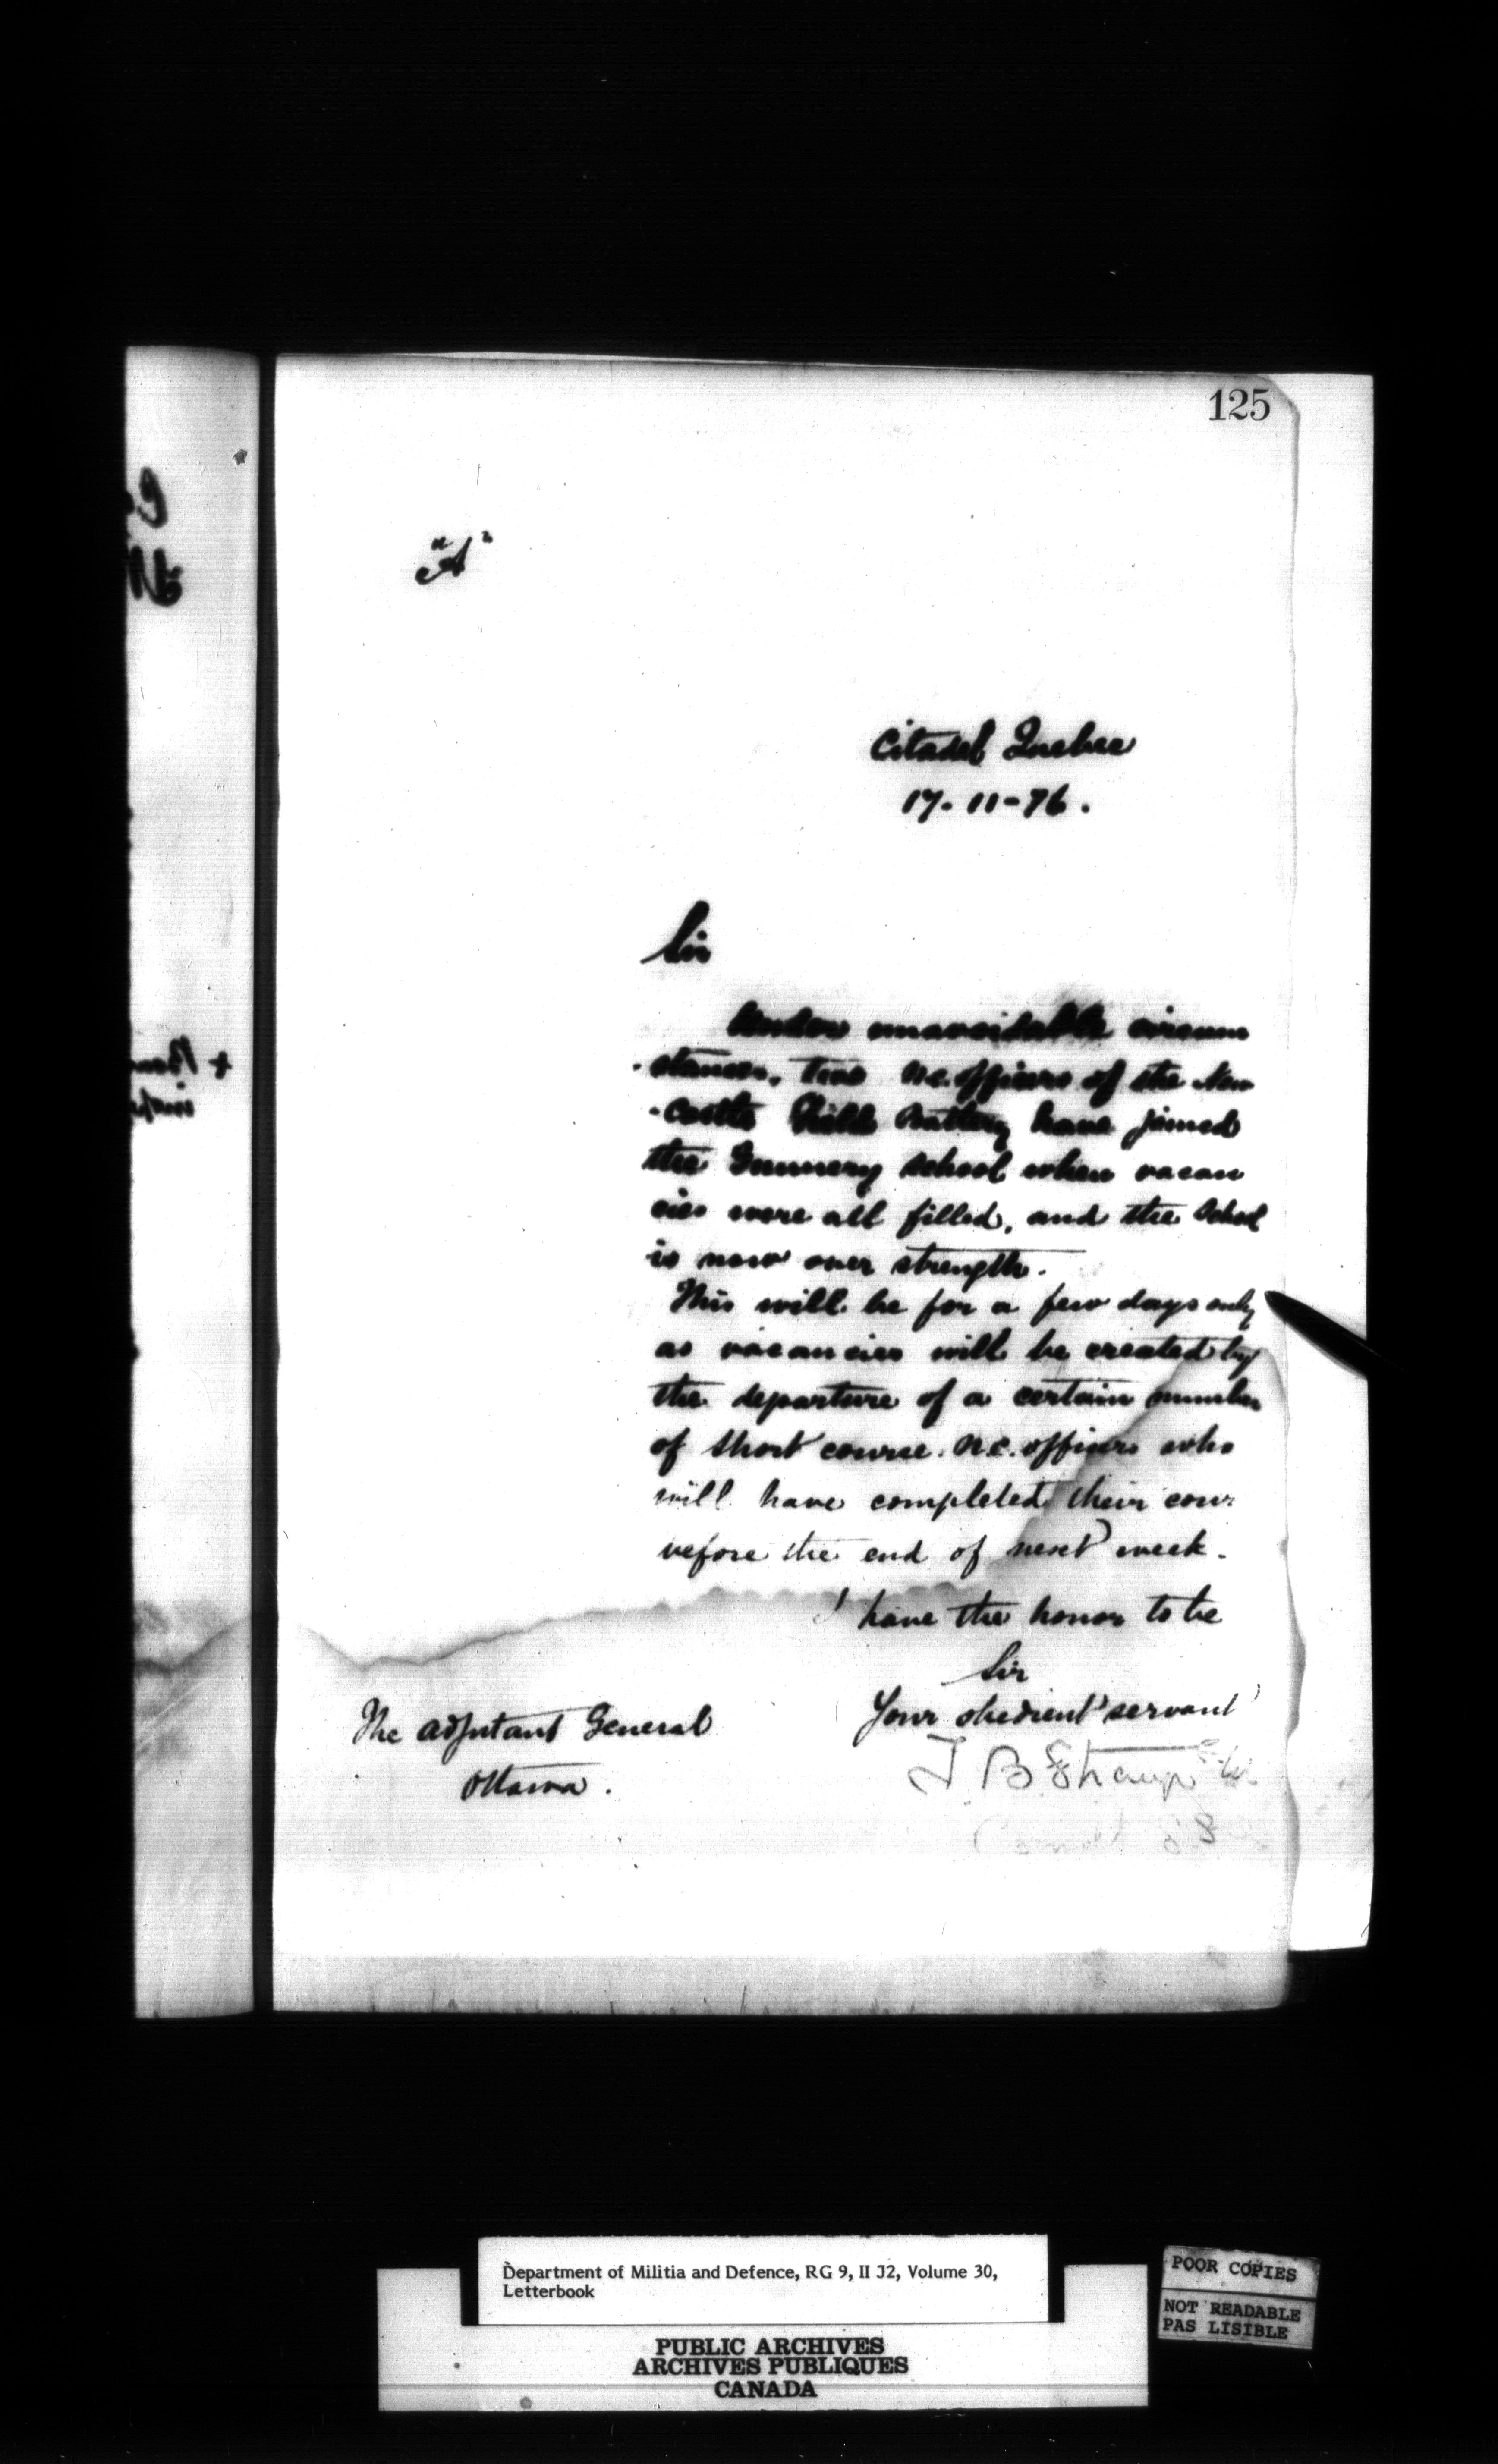 125
"A"
Citadel Quebec
17-11-76.
Sir
Under unavoidable circum
-stances, two N.C. officers of the New
-castle Field Battery have joined
the Gunnery School when vacan
cies were all filled, and the School
is now over strength.
This will be for a few days only
as vacancies will be created by
the departure of a certain number
of short course N.C. officers who
will have completed their cour
before the end of next week.
I have the honor to be
Sir
Your obedient servant
T. B. Strange
The Adjutant General
Ottawa.
Department of Militia and Defence, RG 9, II J2, Volume 30,
Letterbook
PUBLIC ARCHIVES
ARCHIVES PUBLIQUES
CANADA
POOR COPIES
NOT READABLE
PAS LISIBLE